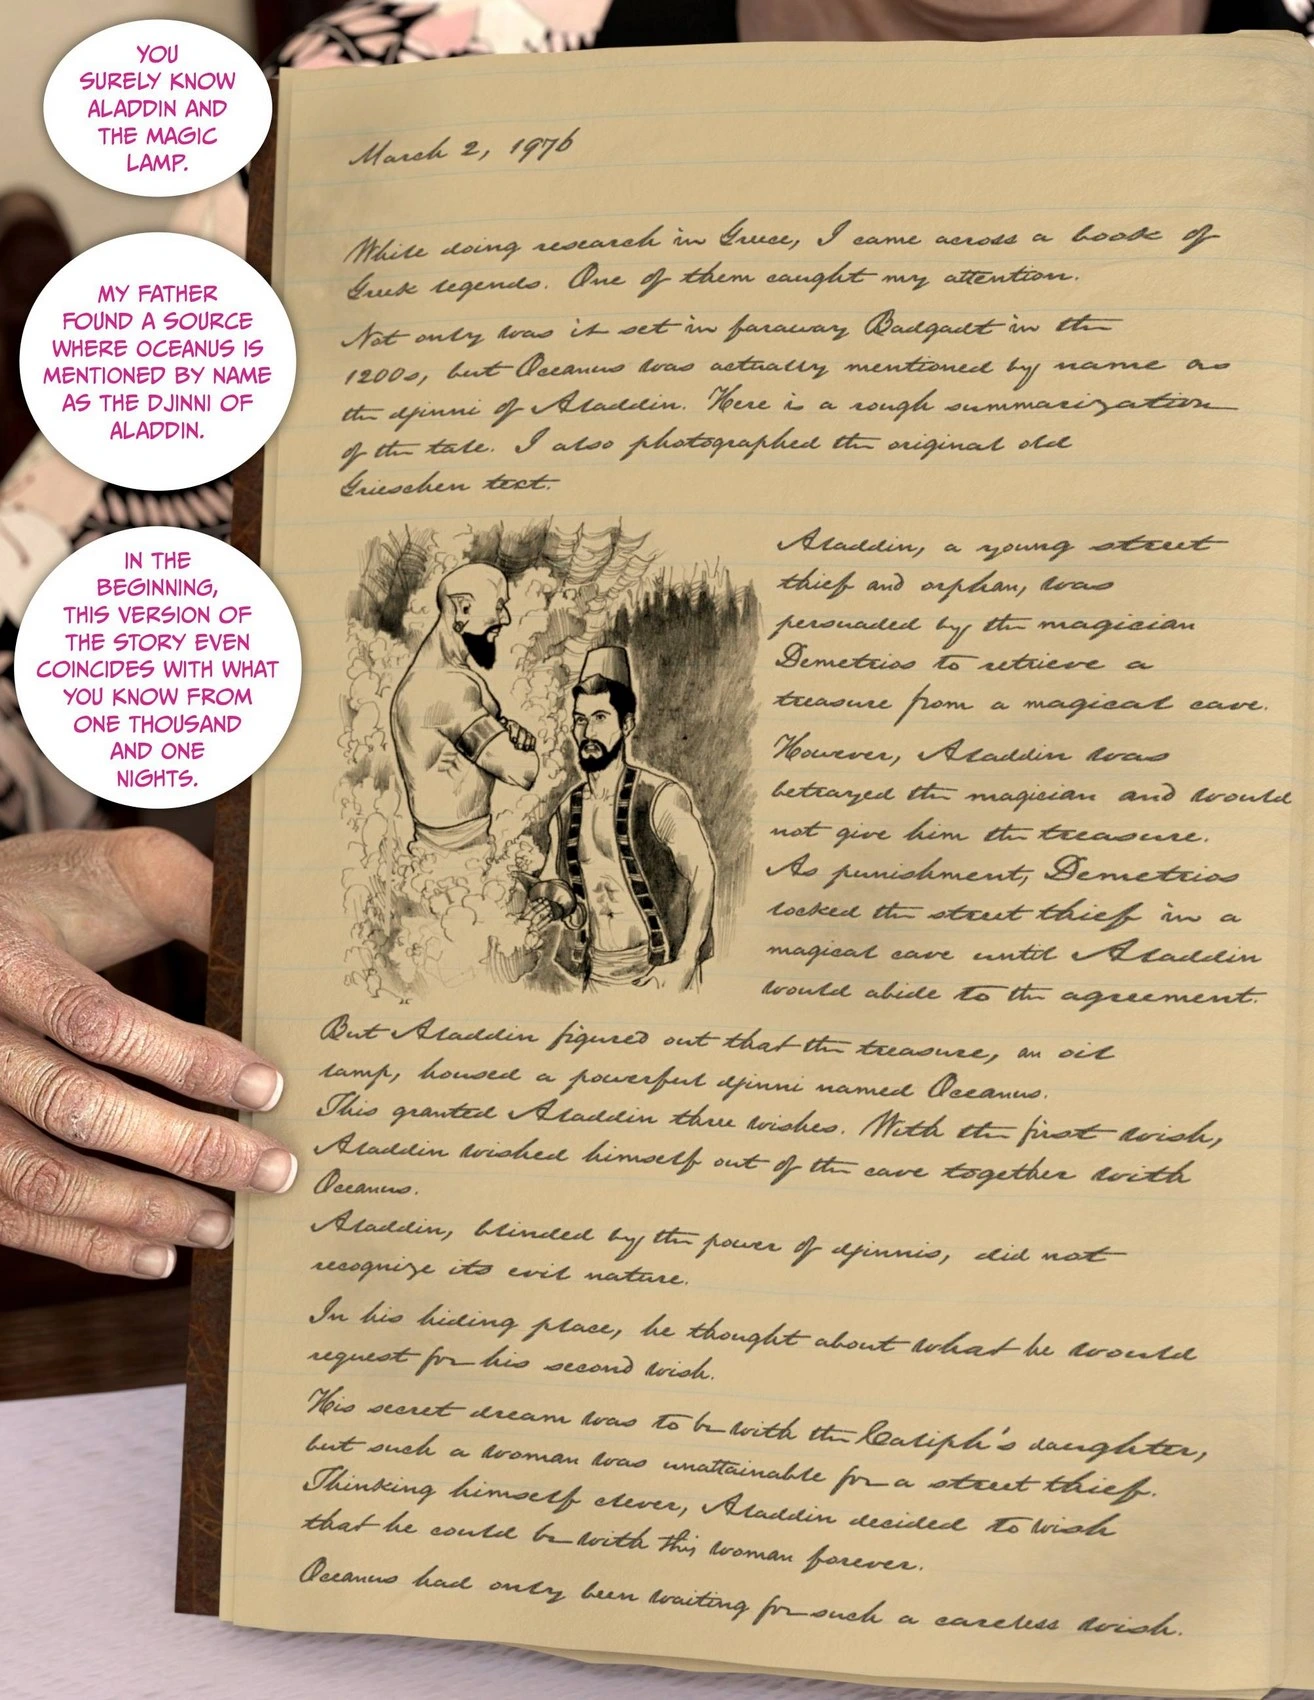 YOU
SURELY KNOW
ALADDIN AND
THE MAGIC
LAMP.
MY FATHER
FOUND A SOURCE
WHERE OCEANUS IS
MENTIONED BY NAME
AS THE DJINNI OF
ALADDIN.
IN THE
BEGINNING,
THIS VERSION OF
THE STORY EVEN
COINCIDES WITH WHAT
YOU KNOW FROM
ONE THOUSAND
AND ONE
NIGHTS.
March 2, 1976
While doing research in Greece, I came across a book of
Greek legends. One of them caught my attention.
Not only was it set in faraway Badgadt in the
1200s, but Oceanus was actually mentioned by name as
the djinni of Aladdin. Here is a rough summarization
of the tale. I also photographed the original old
Grieschen text.
Aladdin, a young street
thief and orphan, was
persuaded by the magician
Demetrios to retrieve a
treasure from a magical cave.
However, Aladdin was
betrayed the magician and would
not give him the treasure.
As punishment, Demetrios
locked the street thief in a
magical cave until Aladdin
would abide to the agreement.
But Aladdin figured out that the treasure, an oil
lamp, housed a powerful djinni named Oceanus.
This granted Aladdin three wishes. With the first wish,
Aladdin wished himself out of the cave together with
Oceanus.
Aladdin, blinded by the power of djinnis, did not
recognize its evil nature.
In his hiding place, he thought about what he would
request for his second wish.
His secret dream was to be with the Caliph's daughter,
but such a woman was unattainable for a street thief.
Thinking himself clever, Aladdin decided to wish
that he could be with this woman forever.
Oceanus had only been waiting for such a careless wish.